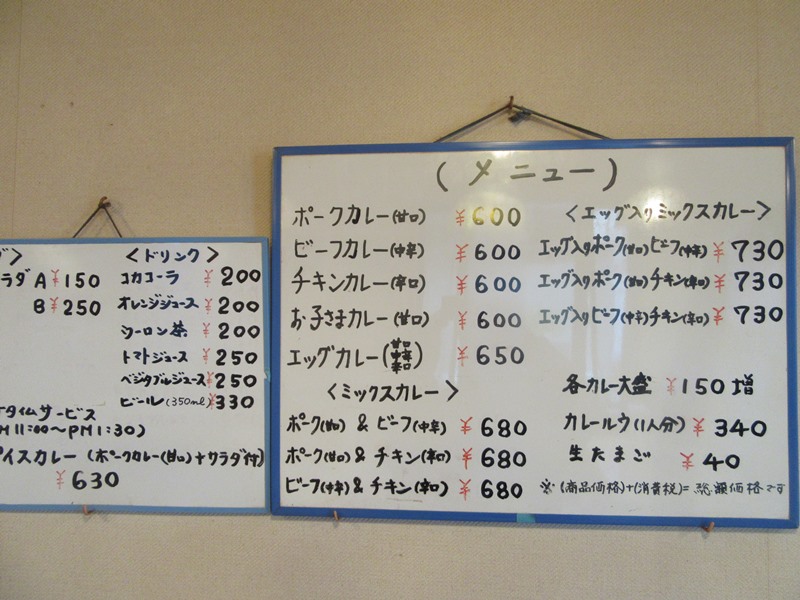 〈ドリンク〉
ラダA ¥150
B ¥250
コカコーラ ¥200
オレンジジュース ¥200
ウーロン茶 ¥200
トマトジュース ¥250
ベジタブルジュース ¥250
ビール(350ml) ¥330
タイムサービス
M11:00〜PM1:30)
イスカレー(ポークカレー(甘口)+サラダ付)
¥630
(メニュー)
ポークカレー(甘口) ¥600
ビーフカレー(中辛) ¥600
チキンカレー(辛口) ¥600
お子さまカレー(甘口) ¥600
エッグカレー(甘口 中辛 辛口) ¥650
〈ミックスカレー〉
ポーク(甘口)&ビーフ(中辛) ¥680
ポーク(甘口)&チキン(辛口) ¥680
ビーフ(中辛)&チキン(辛口) ¥680
〈エッグ入りミックスカレー〉
エッグ入りポーク(甘口)ビーフ(中辛) ¥730
エッグ入りポーク(甘口)チキン(辛口) ¥730
エッグ入りビーフ(中辛)チキン(辛口) ¥730
各カレー大盛 ¥150増
カレールウ(1人分) ¥340
生たまご ¥40
※(商品価格)+(消費税)=総額価格です